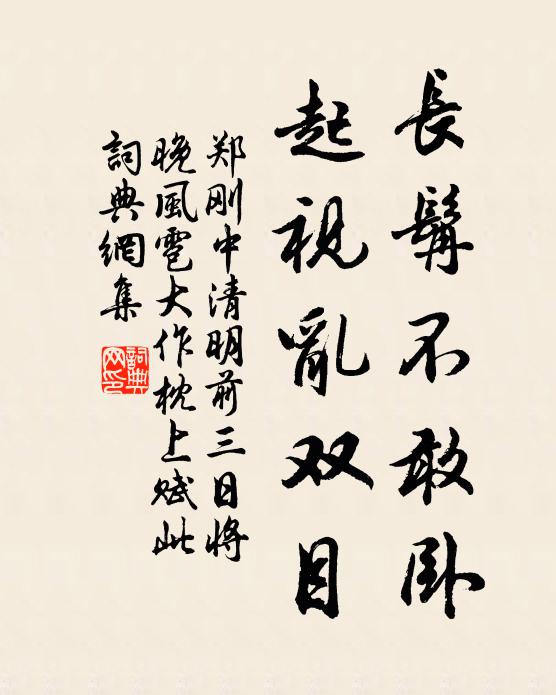 長髯不敢卧
起視亂双目
郑刚中清明前三日将
晚風雹大作枕上赋此
詞典網集
詞典网印